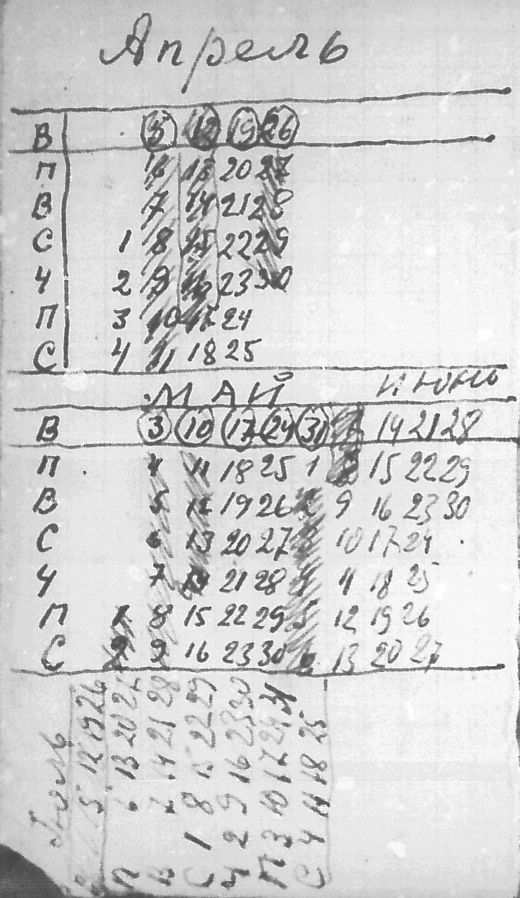 Апрель
В 5 12 19 26
П 6 13 20 27
В 7 14 21 28
С 1 8 15 22 29
Ч 2 9 16 23 30
П 3 10 17 24
С 4 11 18 25
МАЙ ИЮНЬ
В 3 10 17 24 31 7 14 21 28
П 4 11 18 25 1 8 15 22 29
В 5 12 19 26 2 9 16 23 30
С 6 13 20 27 3 10 17 24
Ч 7 14 21 28 4 4 18 25
П 1 8 15 22 29 5 12 19 26
С 2 9 16 23 30 6 13 20 27
5 12 19 26
П 6 13 20 27
В 7 14 21 28
С 1 8 15 22 29
Ч 2 9 16 23 30
П 3 10 17 24 31
С 4 11 18 25